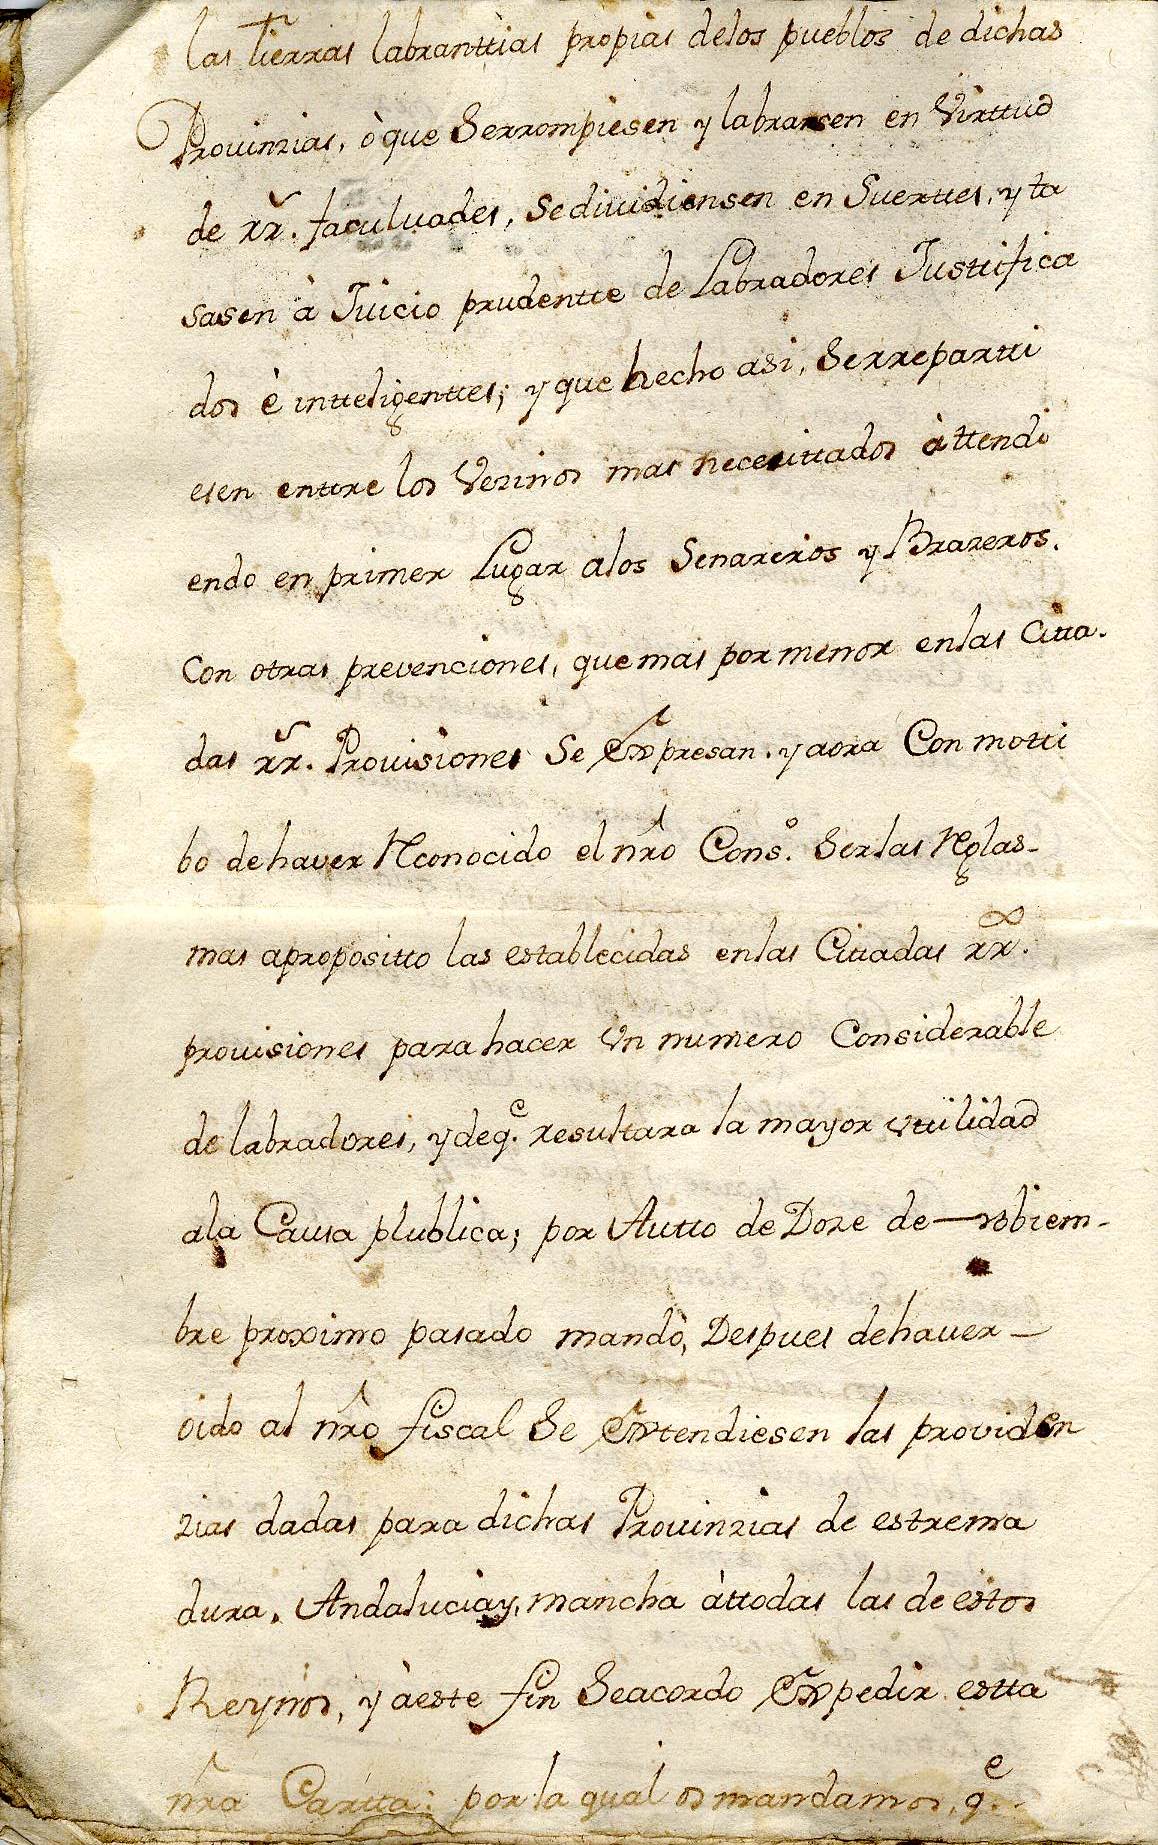 las tierras labranttias propias delos pueblos de dichas
Prouinzias, ò que Serrompiesen y labrarsen en Virttud
de rr.s facultades, Sediuidiensen en Suerttes, y ta
sasen à Juicio prudentte de Labradores Justtifica
dos è inttelligenttes; y que hecho asi, Serrepartti
esen enttre los Vezinos mas necesittados àttendi
endo en primer Lugar alos Senareros y Brazeros.
Con otras prevenciones, que mas por menor enlas Citta-
das rr.s Prouisiones Se Expresan. y aora Con motti
bo dehaver Reconocido el nr̃o Cons.o Serlas Reglas-
mas apropositto las establecidas enlas Cittadas rr.s
prouisiones para hacer Vn numero Considerable
de labradores, y deq.e resultara la mayor vttilidad
ala Causa plublica; por Autto de Doze de—nobiem-
bre proximo pasado mandò, Despues dehauer—
oido al nr̃o fiscal Se Extendiesen las providen
zias dadas para dichas Prouinzias de estrema
dura, Andalucia y, mancha àttodas las de estos
Reynos, y àeste fin Seacordo Expedir estta
nr̃a Cartta; por la qual os mandamos, q.e